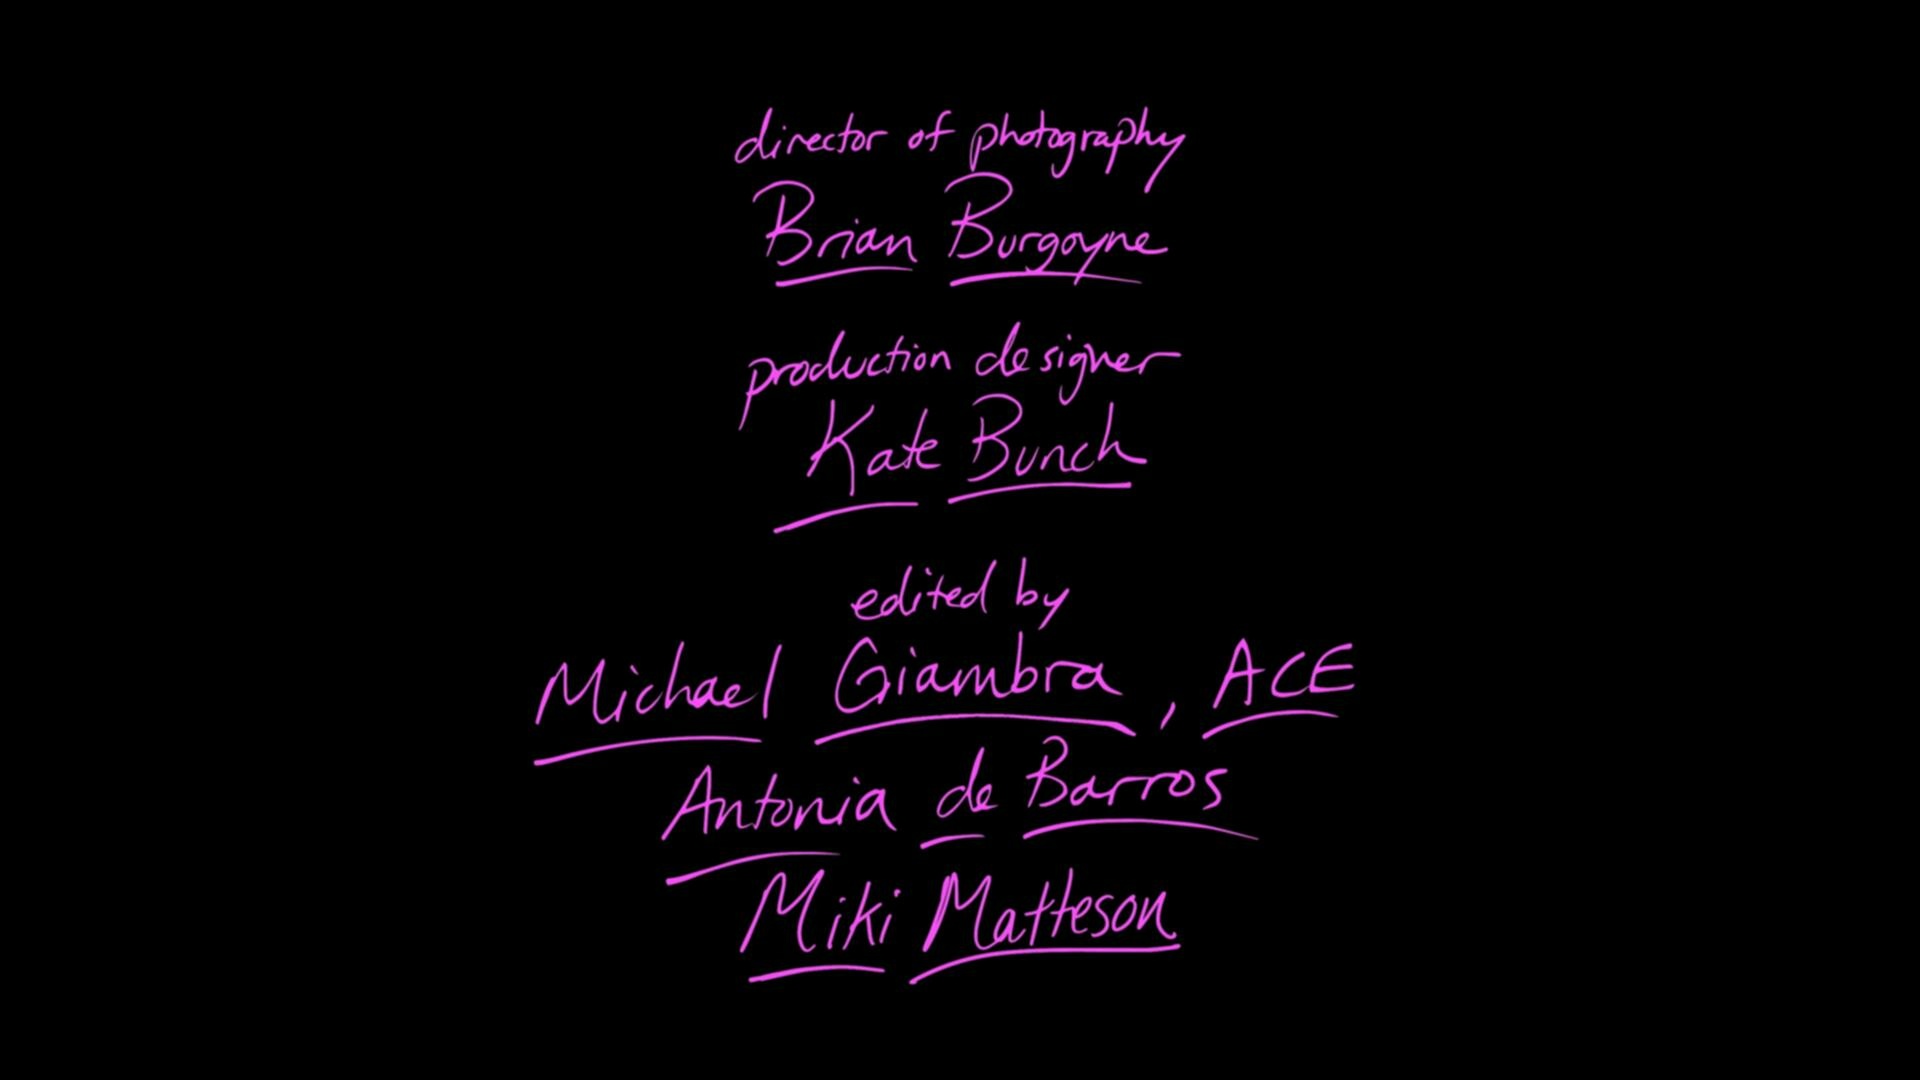 director of photography
Brian Burgoyne
production designer
Kate Bunch
edited by
Michael Giambra, ACE
Antonia de Barros
Miki Matteson